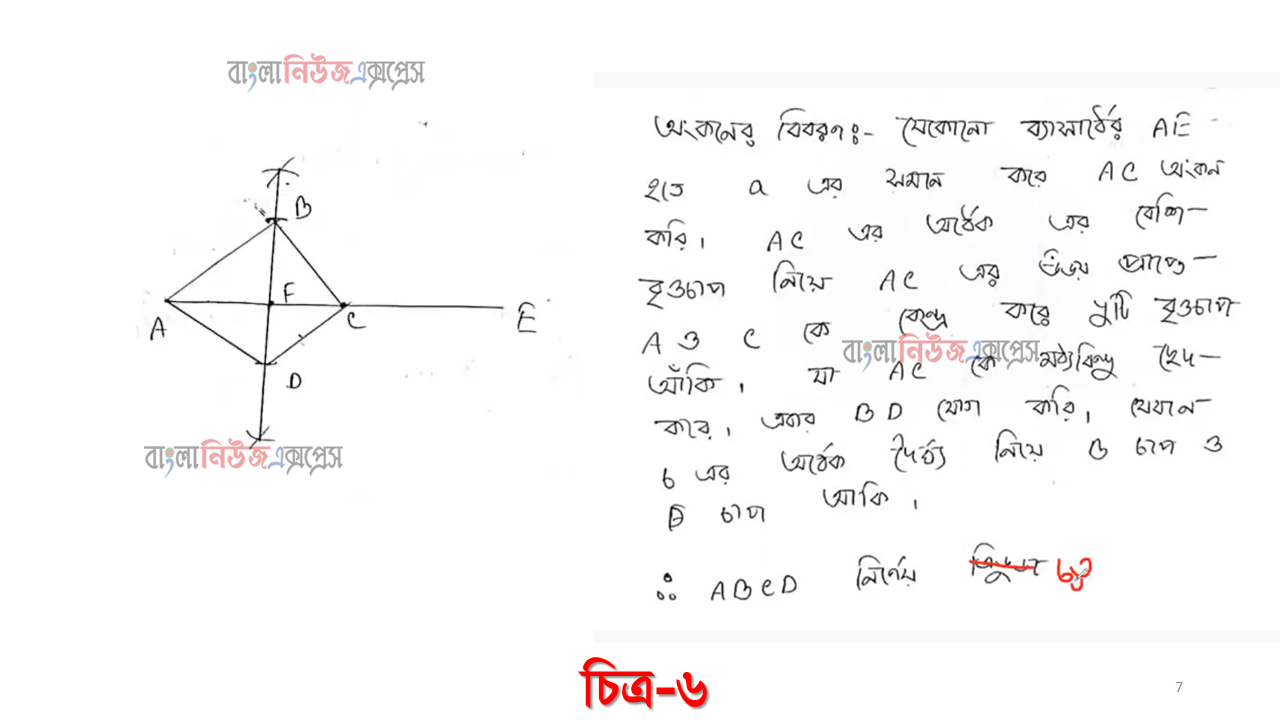 বাংলানিউজএক্সপ্রেস
অংকনের বিবরণঃ- যেকোনো ব্যাসার্ধের AE
হতে a এর সমান করে AC অংকন
করি। AC এর অর্ধেক এর বেশি
বৃত্তচাপ নিয়ে AC এর উভয় প্রান্তে
A ও C কে কেন্দ্র করে দুটি বৃত্তচাপ
বাংলানিউজএক্সপ্রেস
আঁকি। যা AC কে মধ্যবিন্দু ছেদ
করে। এবার BD যোগ করি। যেখানে
b এর অর্ধেক দৈর্ঘ্য নিয়ে B চাপ ও
D চাপ আকি।
∴ ABCD নির্ণেয়
B
F
A
C
E
D
বাংলানিউজএক্সপ্রেস
চিত্র-৬
7